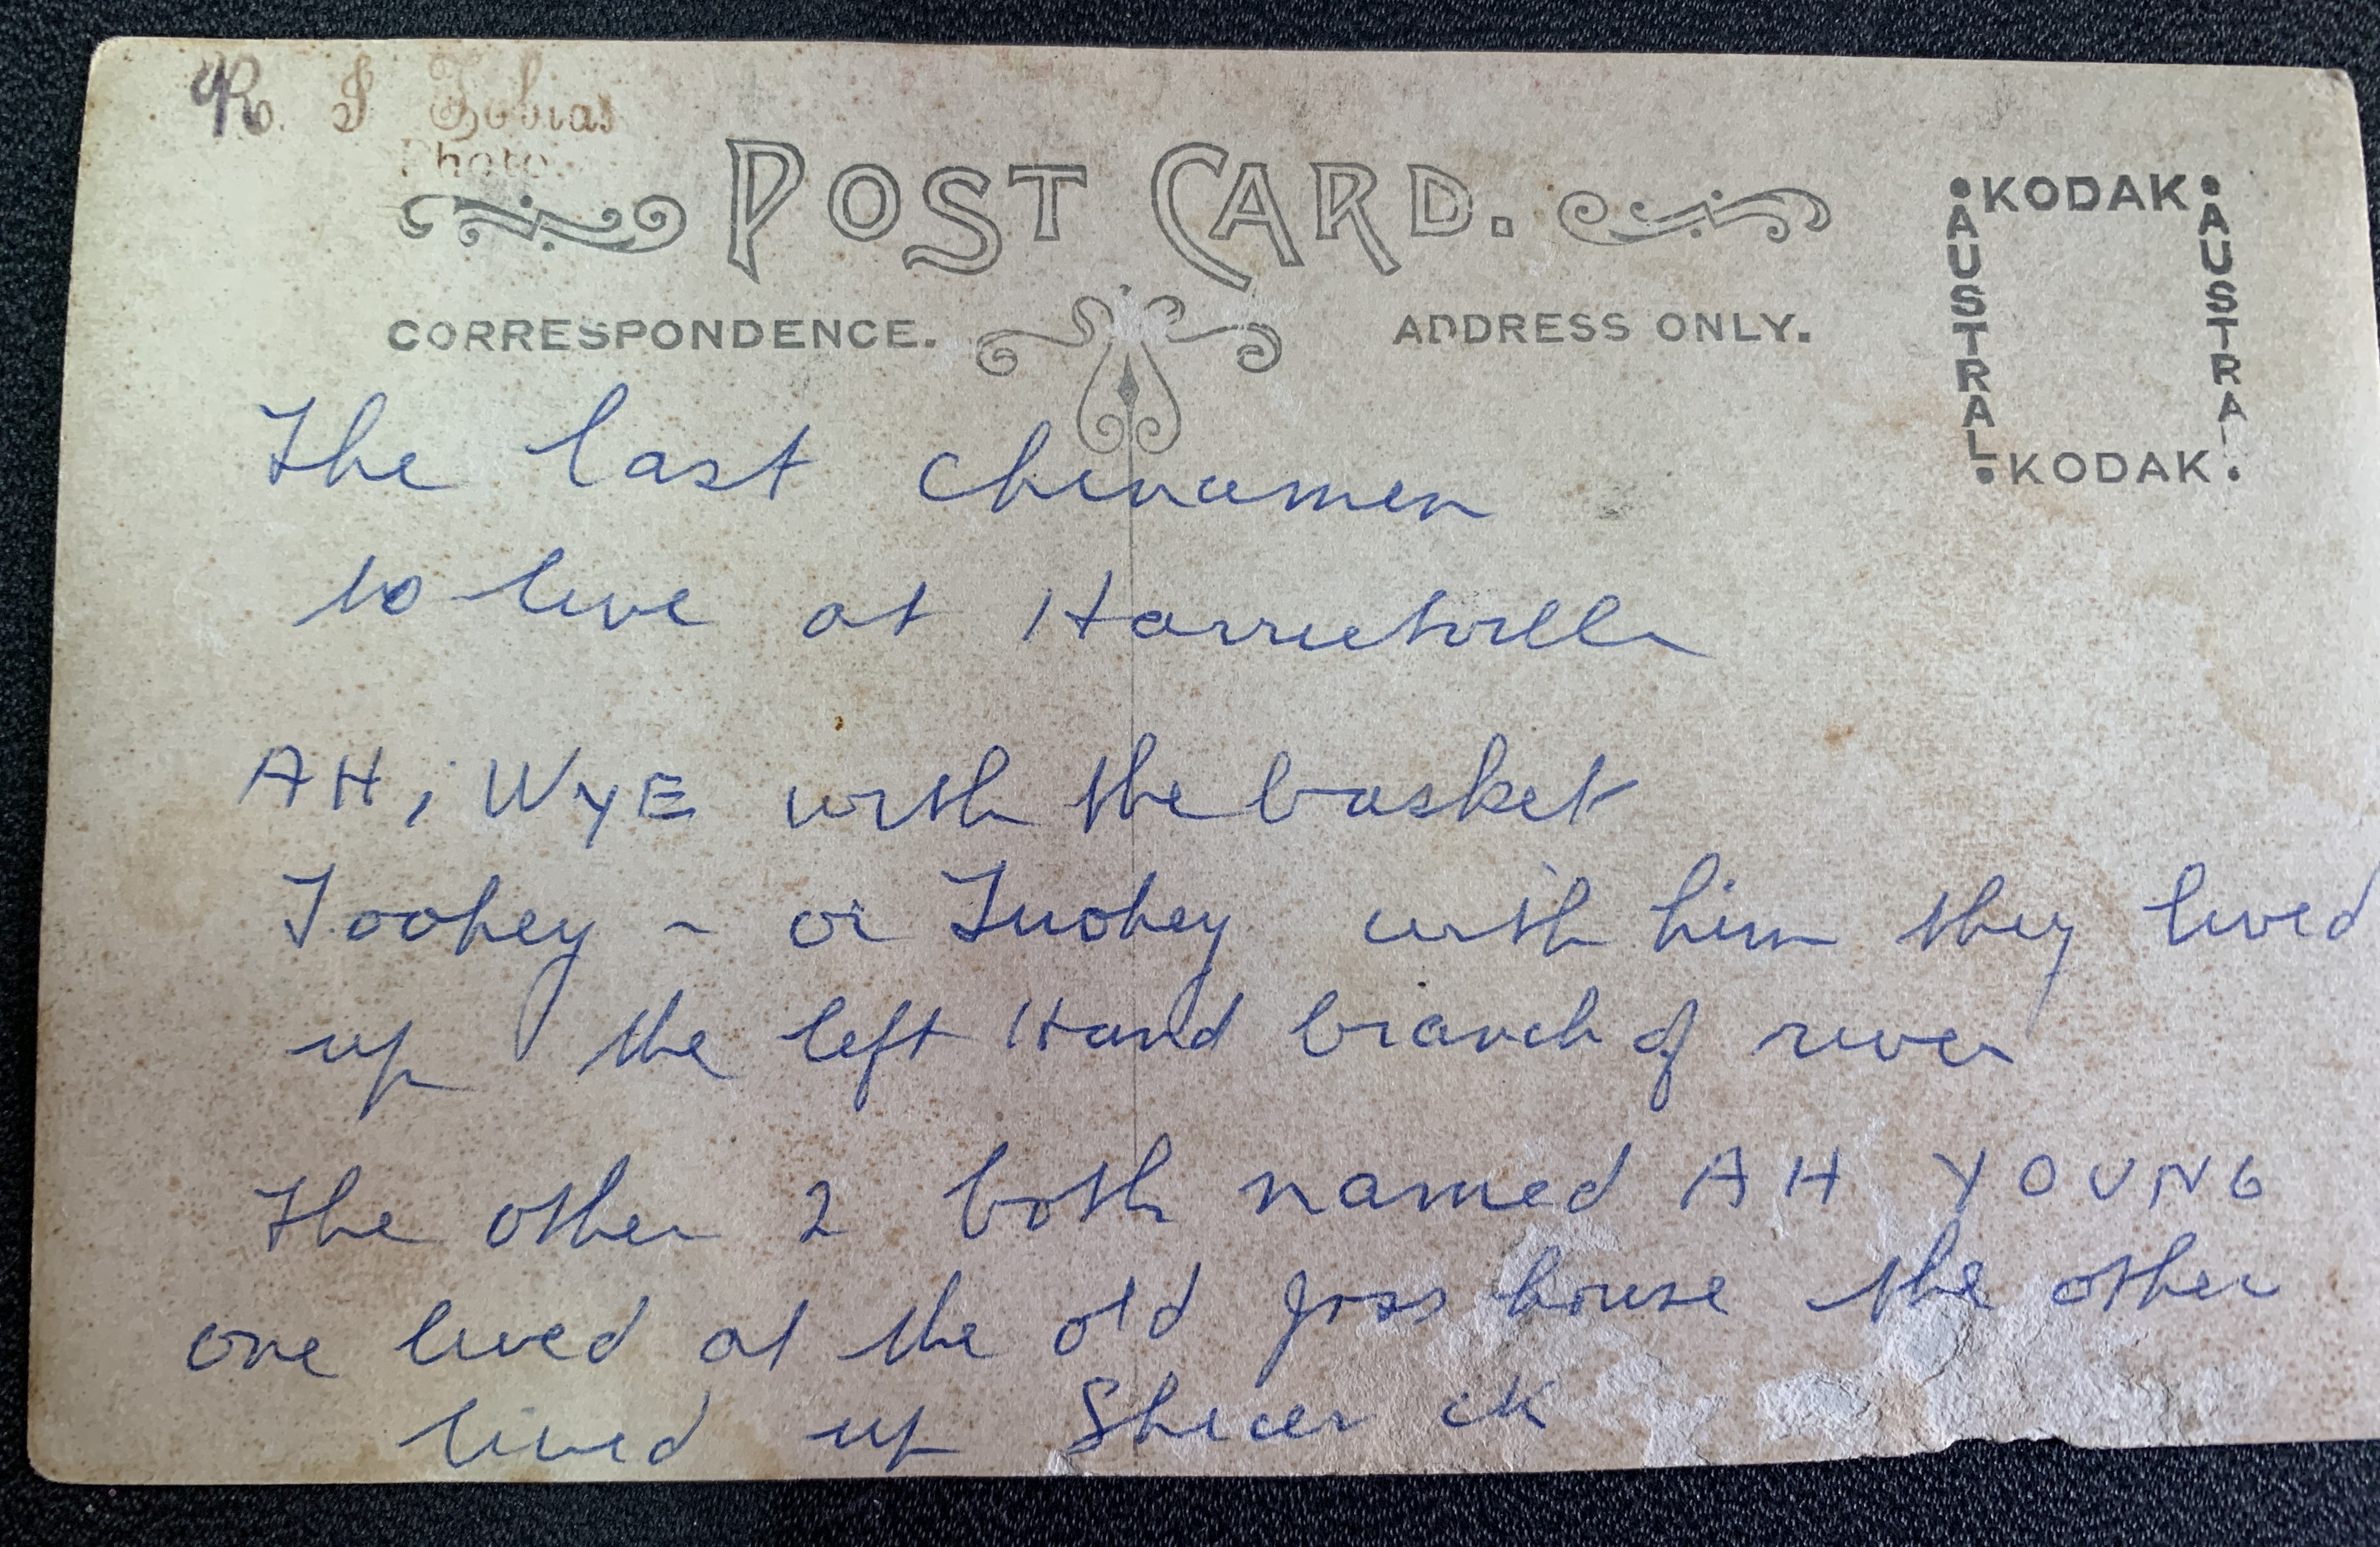 R. J Tobias
Photo.
POST CARD.
CORRESPONDENCE.
ADDRESS ONLY.
KODAK
AUSTRAL
AUSTRAL
KODAK
The last chinamen
to live at Harrietville
AH, WYE with the basket
Toohey - or Tuohey with him they lived
up the left Hand branch of river
The other 2 both named AH YOUNG
one lived at the old joss house the other
lived up Shicer ck